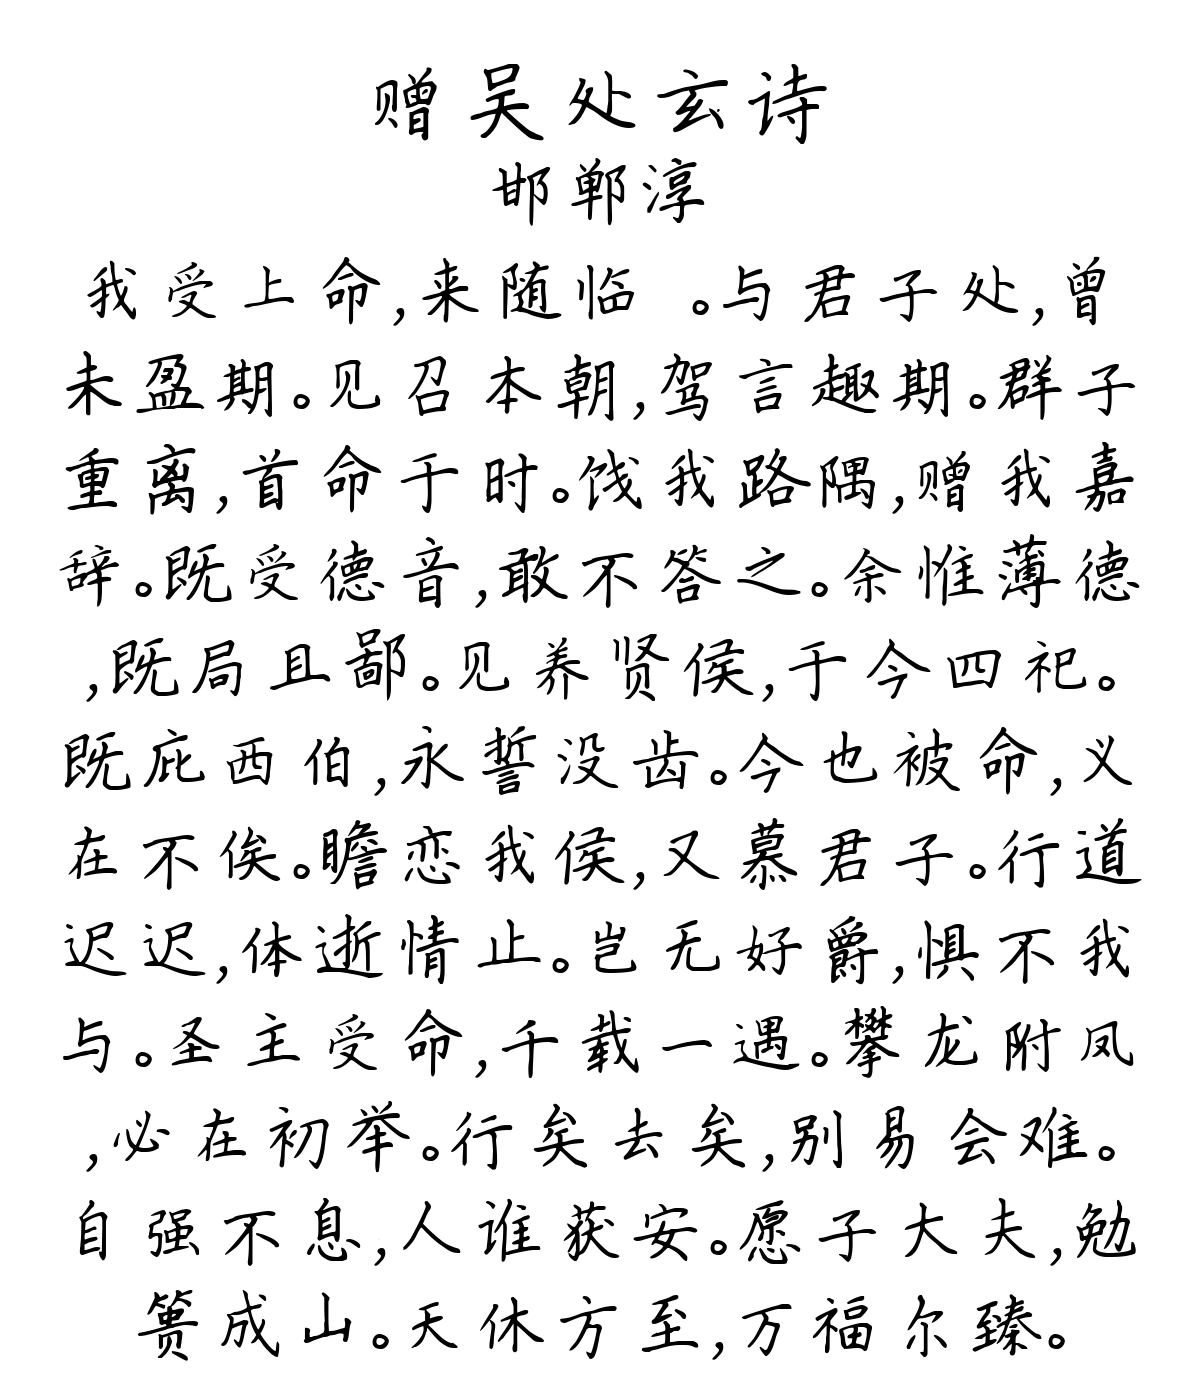 赠吴处玄诗
邯郸淳
我受上命,来随临 。与君子处,曾
未盈期。见召本朝,驾言趣期。群子
重离,首命于时。饯我路隅,赠我嘉
辞。既受德音,敢不答之。余惟薄德
,既局且鄙。见养贤侯,于今四祀。
既庇西伯,永誓没齿。今也被命,义
在不俟。瞻恋我侯,又慕君子。行道
迟迟,体逝情止。岂无好爵,惧不我
与。圣主受命,千载一遇。攀龙附凤
,必在初举。行矣去矣,别易会难。
自强不息,人谁获安。愿子大夫,勉
篑成山。天休方至,万福尔臻。